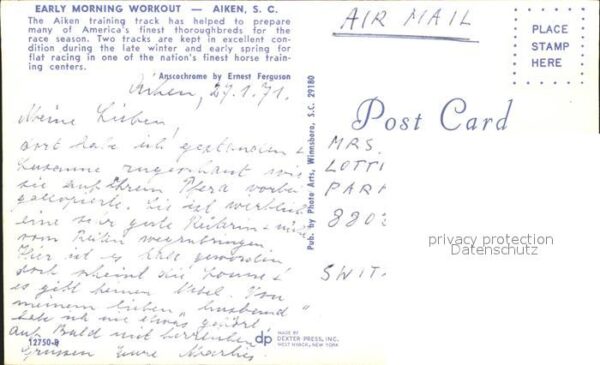 EARLY MORNING WORKOUT — AIKEN, S. C.
The Aiken training track has helped to prepare
many of America's finest thoroughbreds for the
race season. Two tracks are kept in excellent con-
dition during the late winter and early spring for
flat racing in one of the nation's finest horse train-
ing centers.
Anscochrome by Ernest Ferguson
Aiken, 27.1.71.
Meine Lieben!
dort habe ich gestanden +
Susanne zugeschaut wie
sie auf ihrem Pferd vorbei
galoppierte. Sie ist wirklich
eine sehr gute Reiterin +
vom Reiten
Hier ist es kalt geworden
doch scheint die Sonne +
es gibt keinen Nebel. Von
meinem lieben "husband"
habe ich nie etwas gehört.
Auf Bald mit herzlichen
Grüssen Eure
12750-B
Pub. by Photo Arts, Winnsboro, S.C. 29180
AIR MAIL
PLACE
STAMP
HERE
Post Card
MRS.
LOTTI
PAR
880
SWIT
privacy protection
Datenschutz
dp
MADE BY
DEXTER PRESS, INC.
WEST NYACK, NEW YORK